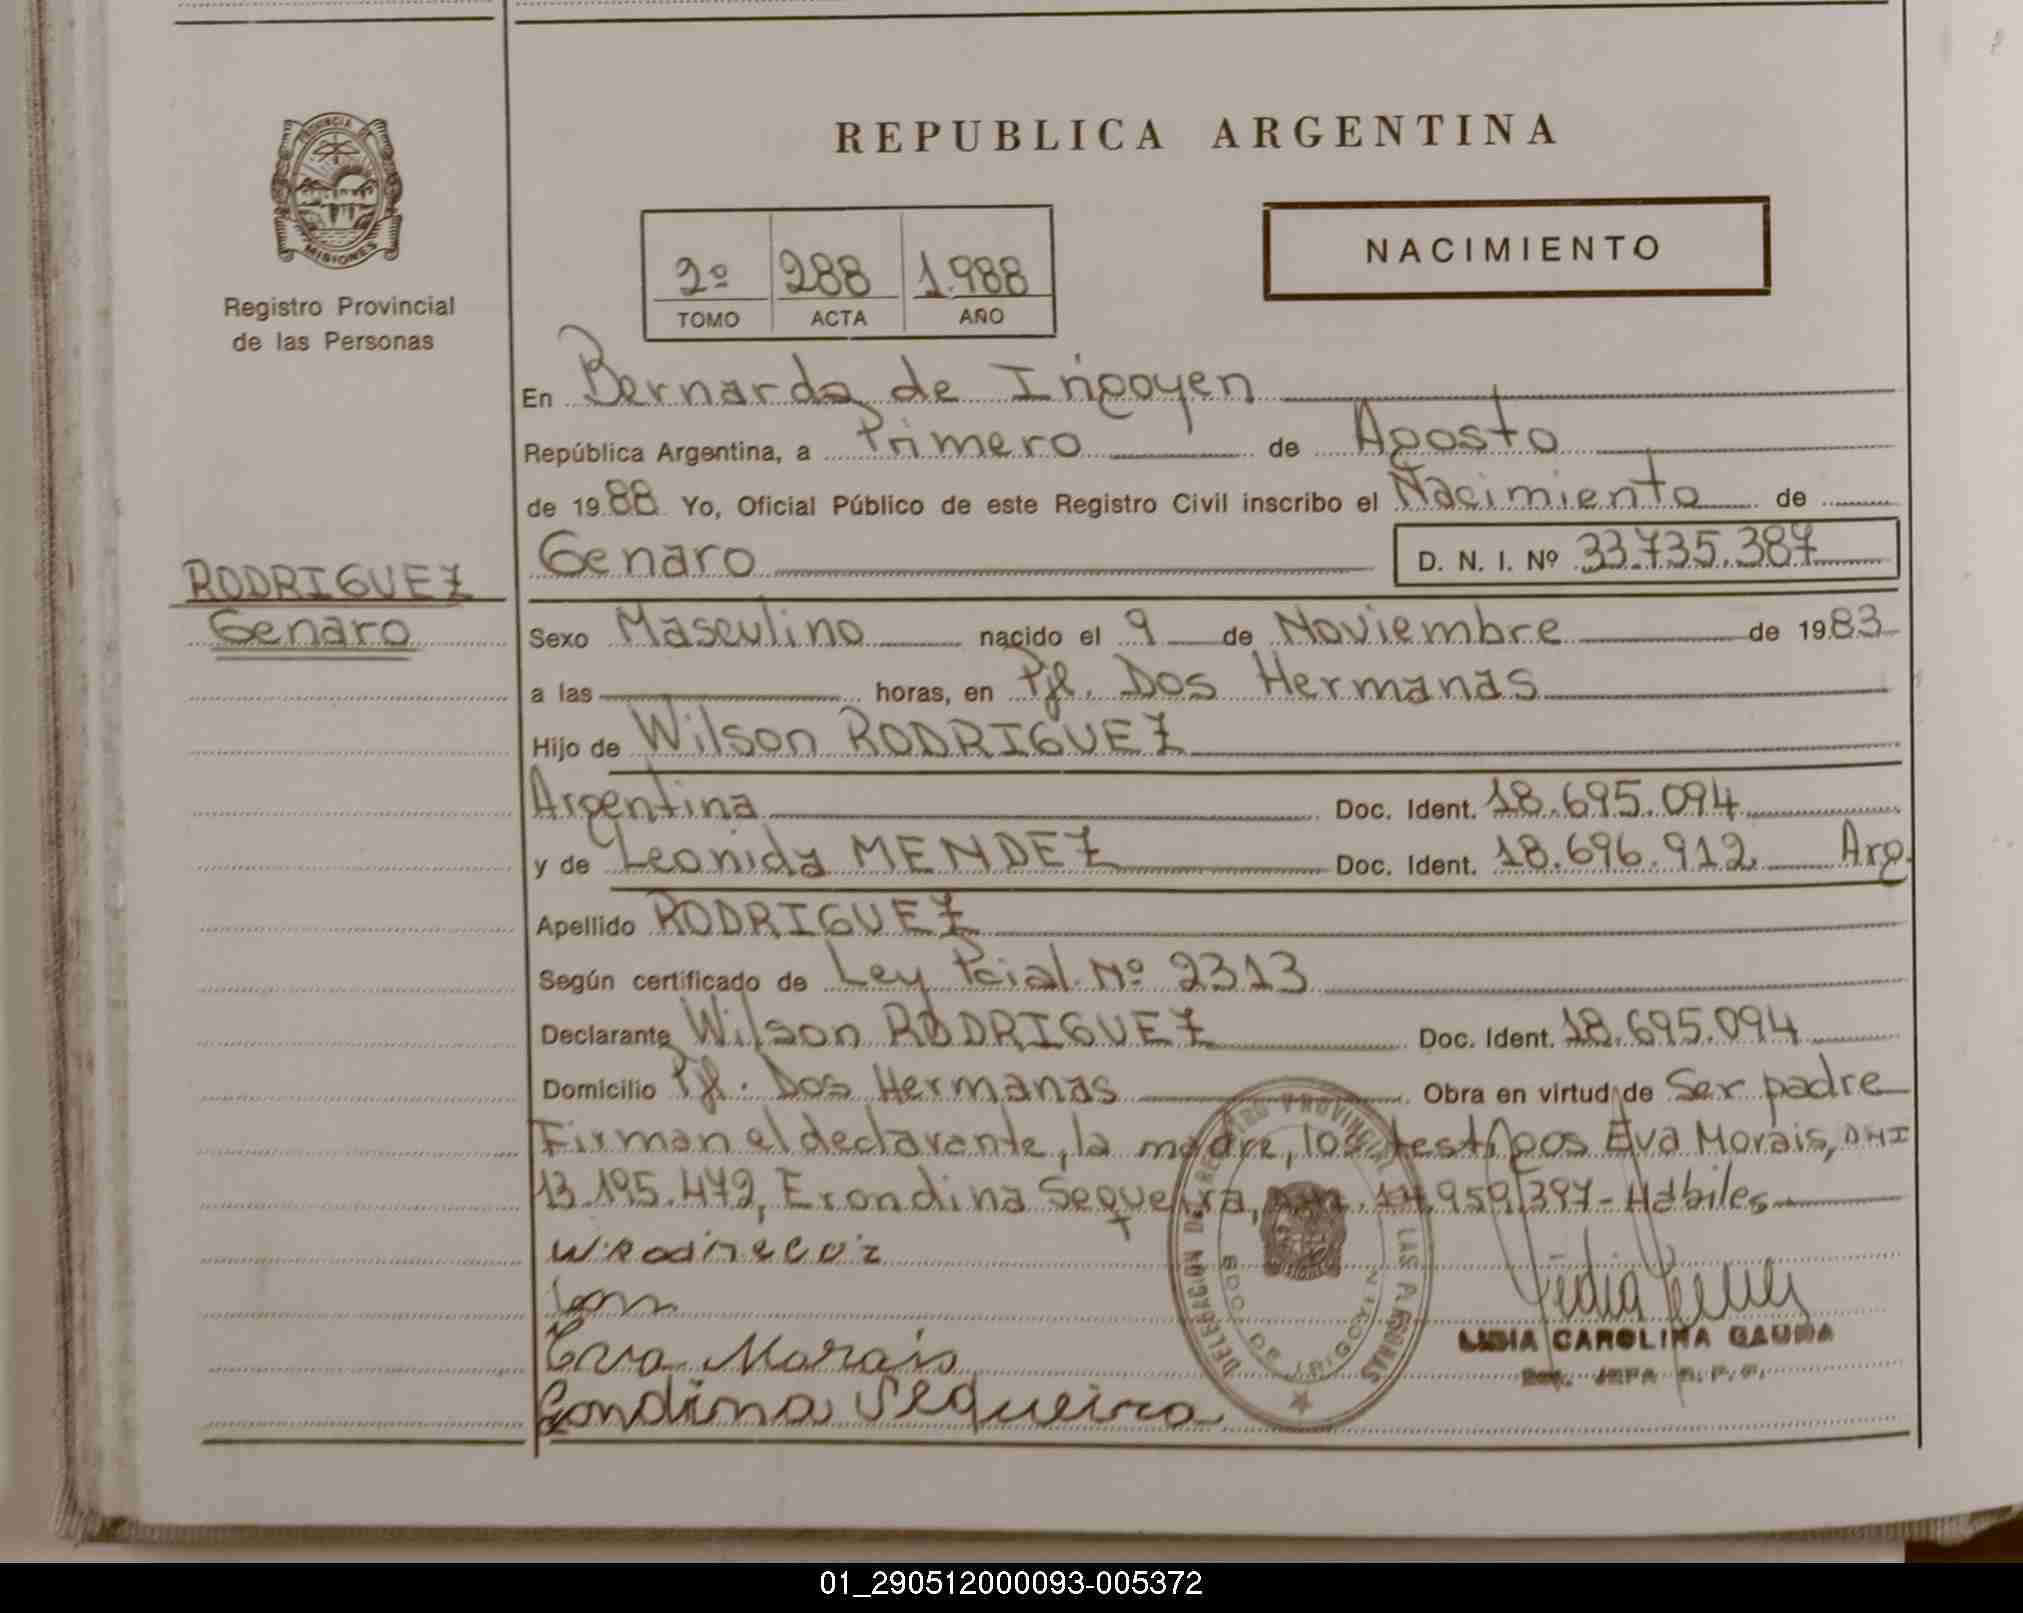 PROVINCIA DE
MISIONES
Registro Provincial
de las Personas
RODRIGUEZ
Genaro
REPUBLICA ARGENTINA
2º 288 1.988
TOMO ACTA AÑO
NACIMIENTO
En Bernardo de Irigoyen
República Argentina, a Primero de Agosto
de 1988 Yo, Oficial Público de este Registro Civil inscribo el Nacimiento de
Genaro D. N. I. Nº 33.735.387
Sexo Masculino nacido el 9 de Noviembre de 1983
a las horas, en Pje. Dos Hermanas
Hijo de Wilson RODRIGUEZ
Argentina Doc. Ident. 18.695.094
y de Leonida MENDEZ Doc. Ident. 18.696.912 Arg.
Apellido RODRIGUEZ
Según certificado de Ley Pcial. Nº 2313
Declarante Wilson RODRIGUEZ Doc. Ident. 18.695.094
Domicilio Pje. Dos Hermanas Obra en virtud de Ser padre
Firman el declarante, la madre, los testigos Eva Morais, DNI
13.195.472, Erondina Sequeira, 959.397 - Hábiles
DELEGACION DEL REGISTRO PROVINCIAL DE LAS PERSONAS
BDO. DE IRIGOYEN
Eva Morais
Sequeira
LIDIA CAROLINA
JEFA R. P. P.
01_290512000093-005372